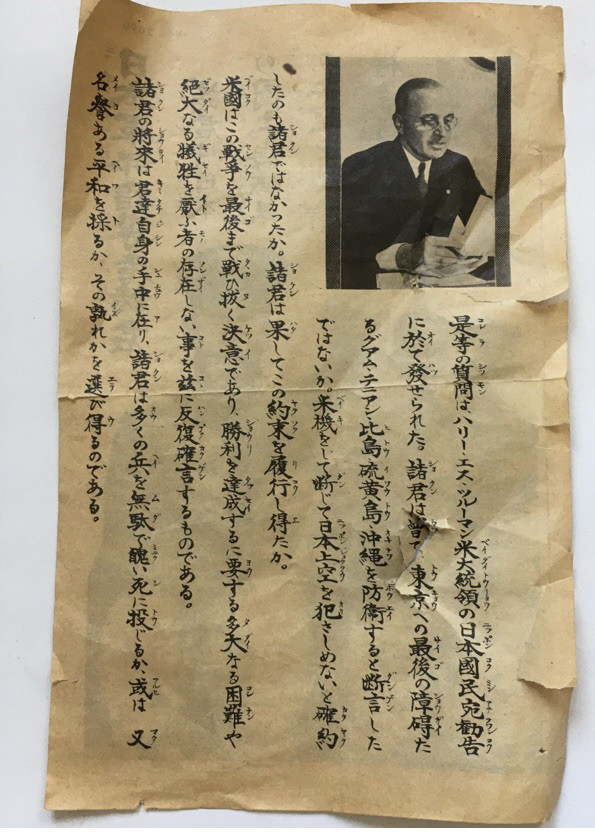 是等の質問は、ハリー・エス・ツルーマン米大統領の日本國民宛勧告
に於て發せられた。諸君は嘗て、東京への最後の障碍た
るグアム・テニアン・比島・硫黄島・沖縄を防衛すると断言した
ではないか。米機をして断じて日本上空を犯さしめないと確約
したのも諸君ではなかつたか。諸君は果してこの約束を履行し得たか。
米國はこの戦爭を最後まで戦ひ抜く決意であり、勝利を達成するに要する多大なる困難や
絶大なる犠牲を厭ふ者の存在しない事を茲に反復確言するものである。
諸君の將來は君達自身の手中に在り、諸君は多くの兵を無駄で醜い死に投じるか、或は又
名譽ある平和を採るか、その孰れかを選び得るのである。